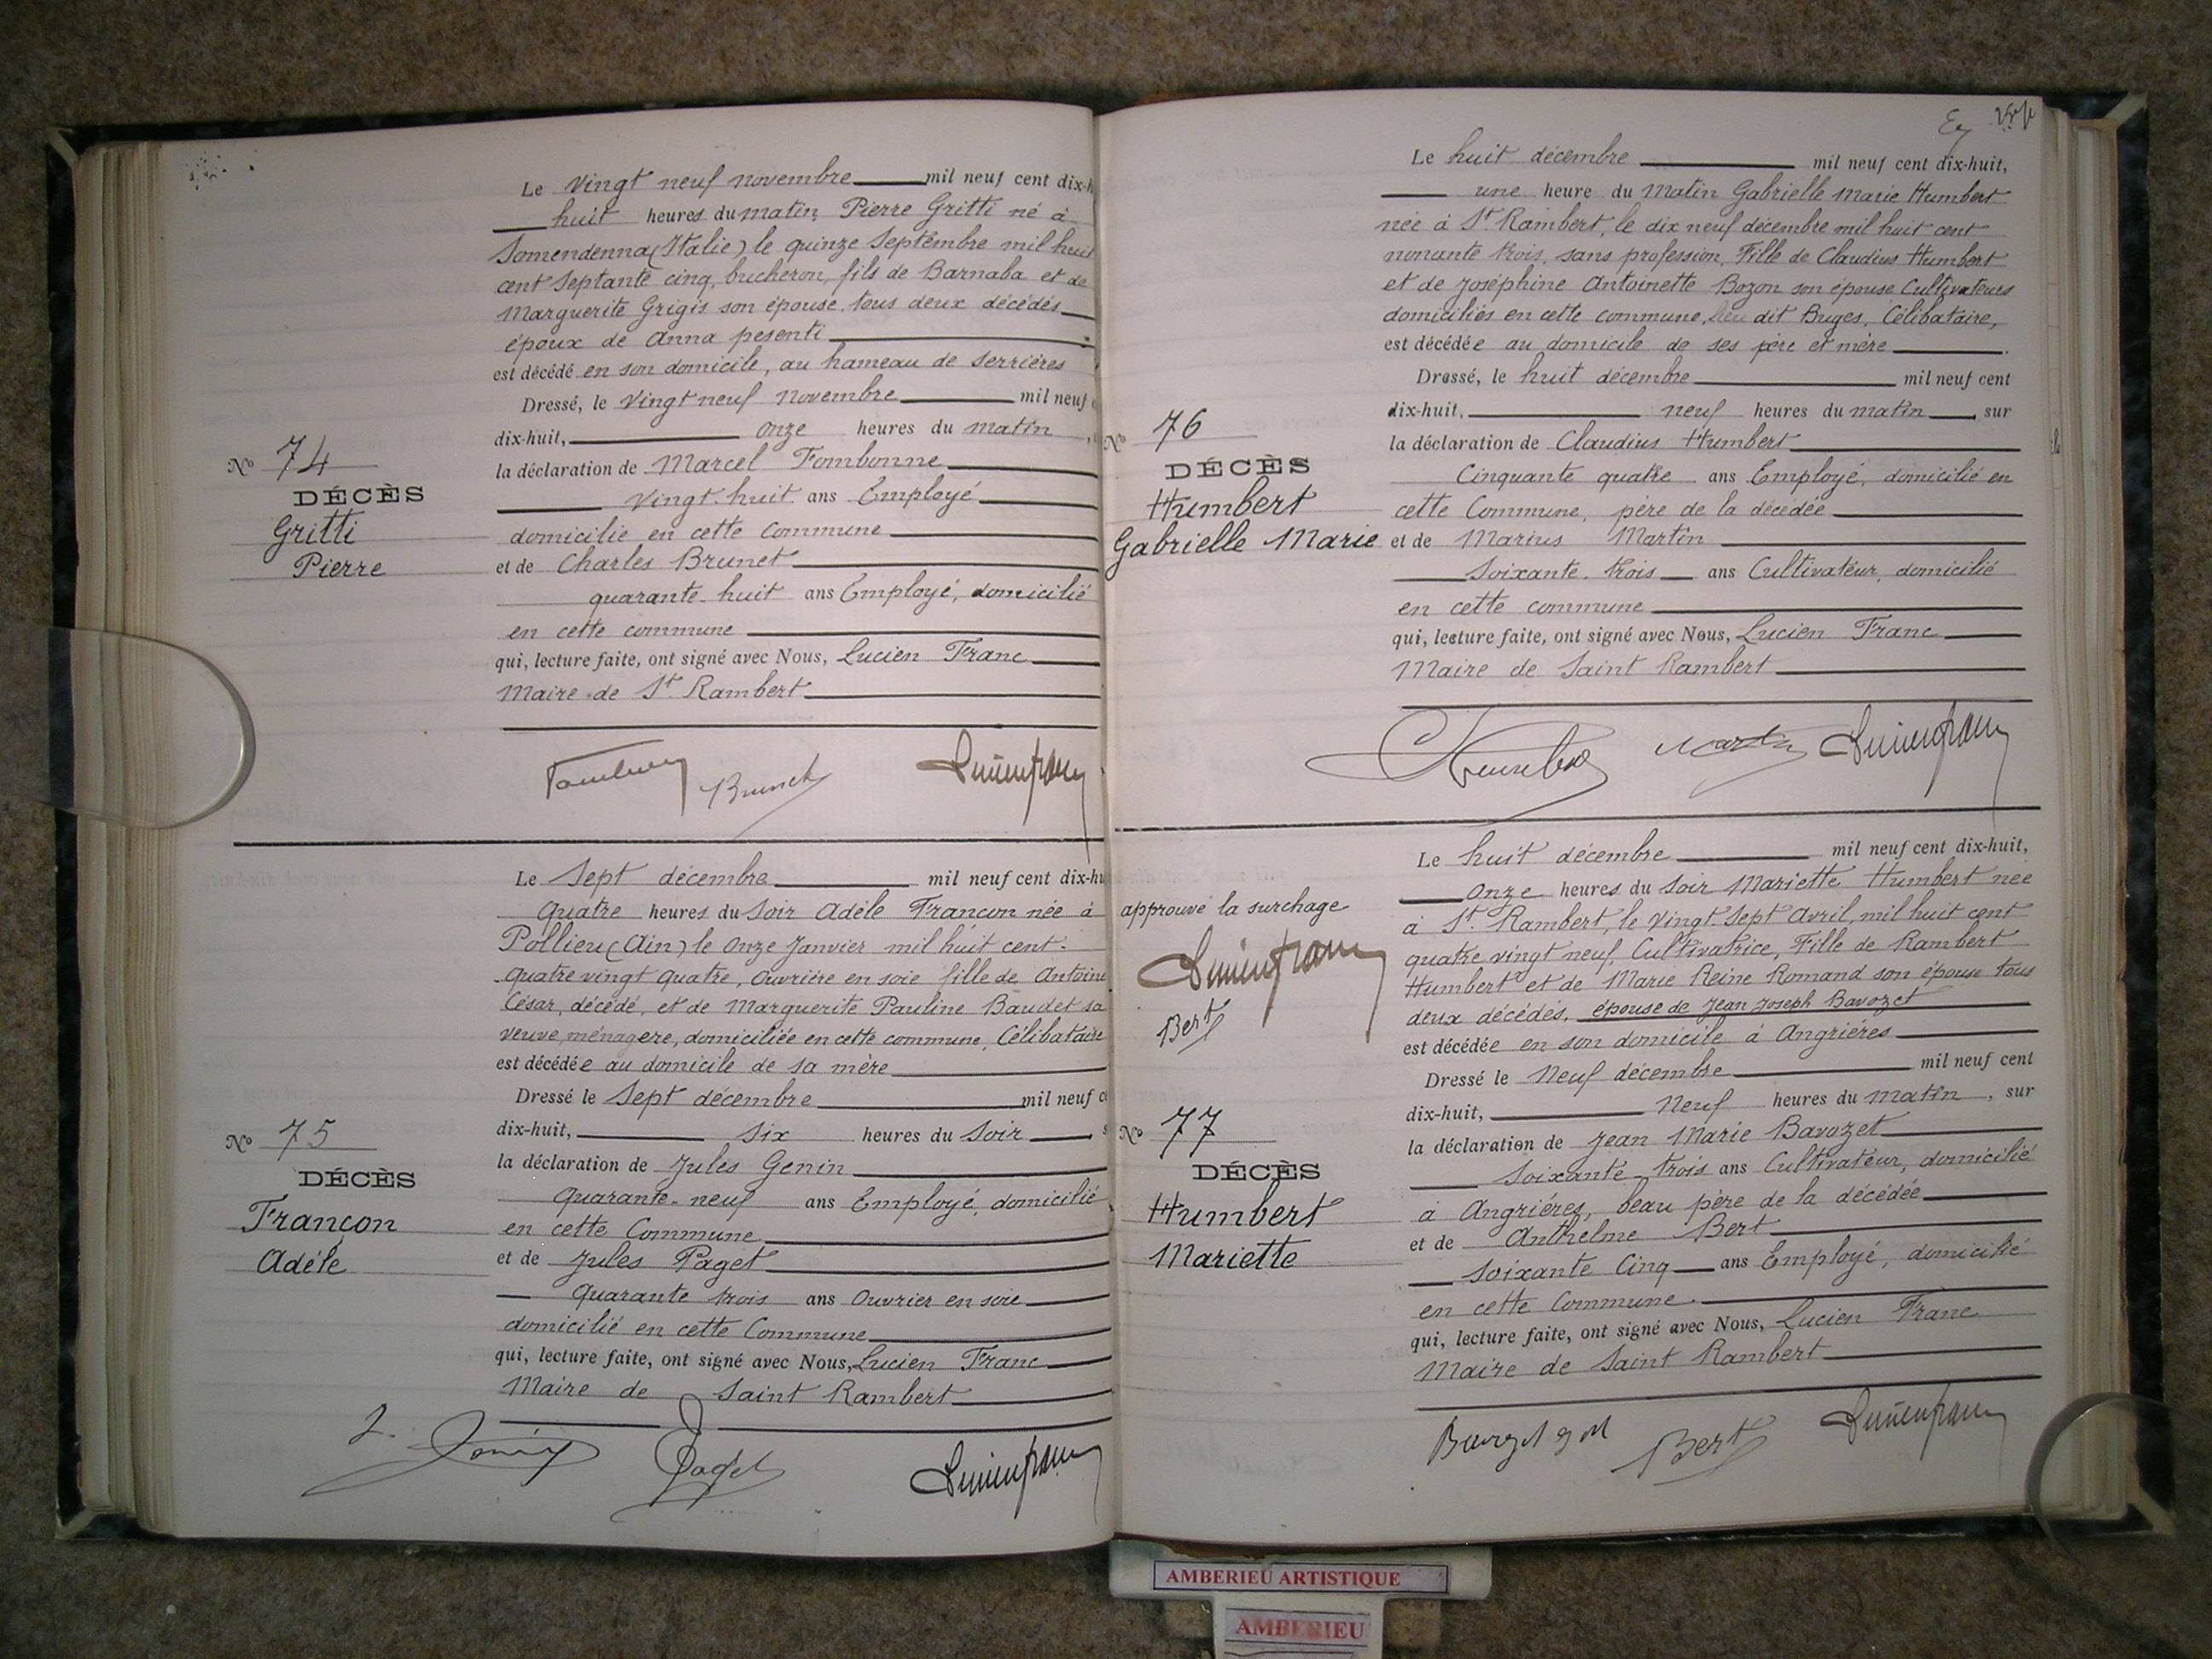 Le Vingt neuf novembre mil neuf cent dix-h
huit heures du matin, Pierre Gritti né à
Somendenna (Italie) le quinze Septembre mil huit
cent Septante cinq, bucheron, fils de Barnaba et de
Marguerite Grigis son épouse, tous deux décédés
époux de Anna pesenti
est décédé en son domicile, au hameau de Serrières
Dressé, le Vingt neuf Novembre mil neuf
dix-huit, onze heures du matin
la déclaration de Marcel Fombonne
Vingt-huit ans Employé
domicilié en cette Commune
et de Charles Brunet
quarante-huit ans Employé, domicilié
en cette commune
qui, lecture faite, ont signé avec Nous, Lucien Franc
Maire de St Rambert
No 74
DÉCÈS
Gritti
Pierre
Brunet
Lucien franc
Le Sept décembre mil neuf cent dix-hu
Quatre heures du Soir Adèle Françon née à
Pollieu (Ain) le Onze Janvier mil huit cent-
quatre vingt quatre, Ouvrière en soie fille de Antoine
César, décédé, et de Marguerite Pauline Baudet sa
veuve, ménagere, domiciliée en cette commune, Célibataire
est décédée au domicile de sa mère
Dressé le Sept décembre mil neuf c
dix-huit, Six heures du Soir
la déclaration de Jules Genin
Quarante-neuf ans Employé, domicilié
en cette Commune
et de Jules Paget
Quarante trois ans Ouvrier en soie
domicilié en cette Commune
qui, lecture faite, ont signé avec Nous, Lucien Franc
Maire de Saint Rambert
No 75
DÉCÈS
Françon
Adèle
J. Genin
Paget
Lucien franc
Le huit décembre mil neuf cent dix-huit,
une heure du Matin Gabrielle Marie Humbert
née à St Rambert, le dix neuf décembre mil huit cent
nonante trois, sans profession, Fille de Claudius Humbert
et de Joséphine Antoinette Bozon son épouse Cultivateurs
domiciliés en cette commune, lieu dit Buges, Célibataire,
est décédée au domicile de ses père et mère
Dressé, le huit décembre mil neuf cent
dix-huit, neuf heures du matin, sur
la déclaration de Claudius Humbert
Cinquante quatre ans Employé, domicilié en
cette Commune, père de la décédée
et de Marius Martin
Soixante-trois ans Cultivateur, domicilié
en cette commune
qui, lecture faite, ont signé avec Nous, Lucien Franc
Maire de Saint Rambert
No 76
DÉCÈS
Humbert
Gabrielle Marie
C Humbert
Martin
Lucien franc
Le huit décembre mil neuf cent dix-huit,
Onze heures du Soir Mariette Humbert née
à St Rambert, le Vingt-Sept Avril, mil huit cent
quatre vingt neuf, Cultivatrice, Fille de Rambert
Humbert et de Marie Reine Romand son épouse tous
deux décédés, épouse de Jean Joseph Bavozet
est décédée en son domicile à Angrières
Dressé le Neuf décembre mil neuf cent
dix-huit, Neuf heures du matin, sur
la déclaration de Jean Marie Bavozet
Soixante-trois ans Cultivateur, domicilié
à Angriéres, beau père de la décédée
et de Anthelme Bert
Soixante Cinq ans Employé, domicilié
en cette Commune.
qui, lecture faite, ont signé avec Nous, Lucien Franc
Maire de Saint Rambert
approuvé la surchage
Lucien franc
Bert
No 77
DÉCÈS
Humbert
Mariette
Bavozet J M
Bert
Lucien franc
AMBERIEU ARTISTIQUE
AMBERIEU